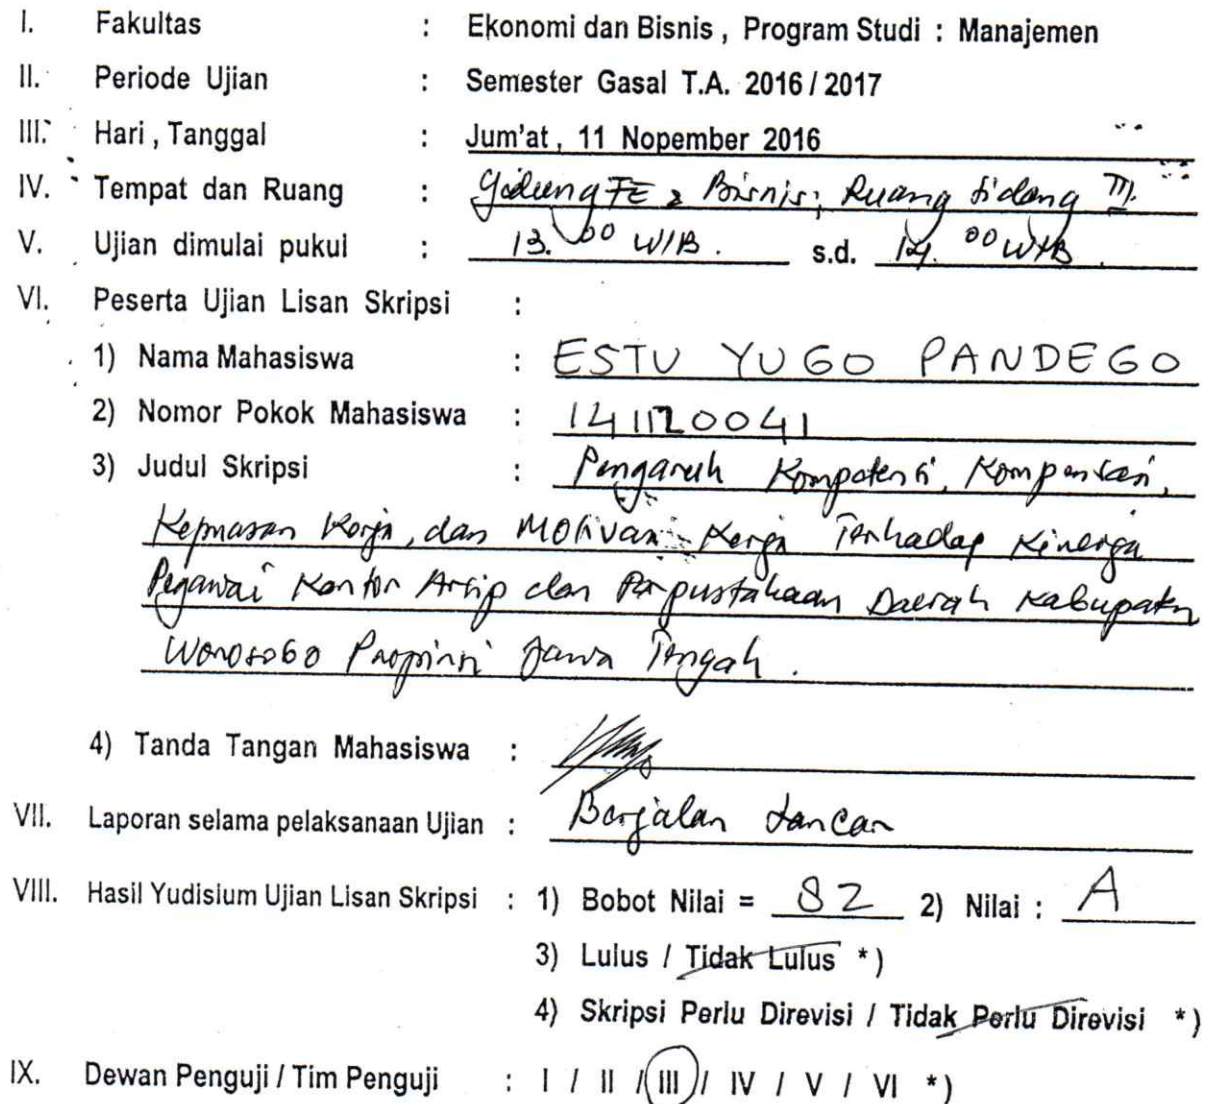 I. Fakultas : Ekonomi dan Bisnis , Program Studi : Manajemen
II. Periode Ujian : Semester Gasal T.A. 2016 / 2017
III. Hari , Tanggal : Jum'at , 11 Nopember 2016
IV. Tempat dan Ruang : Gedung FE & Bisnis; Ruang Sidang III.
V. Ujian dimulai pukul : 13.00 WIB. s.d. 14.00 WIB.
VI. Peserta Ujian Lisan Skripsi :
1) Nama Mahasiswa : ESTU YUGO PANDEGO
2) Nomor Pokok Mahasiswa : 141120041
3) Judul Skripsi : Pengaruh Kompetensi, Kompensasi,
Kepuasan Kerja, dan Motivasi Kerja Terhadap Kinerja
Pegawai Kantor Arsip dan Perpustakaan Daerah Kabupaten
Wonosobo Propinsi Jawa Tengah.
4) Tanda Tangan Mahasiswa :
VII. Laporan selama pelaksanaan Ujian : Berjalan Lancar
VIII. Hasil Yudisium Ujian Lisan Skripsi : 1) Bobot Nilai = 82 2) Nilai : A
3) Lulus / Tidak Lulus *)
4) Skripsi Perlu Direvisi / Tidak Perlu Direvisi *)
IX. Dewan Penguji / Tim Penguji : I / II / III / IV / V / VI *)